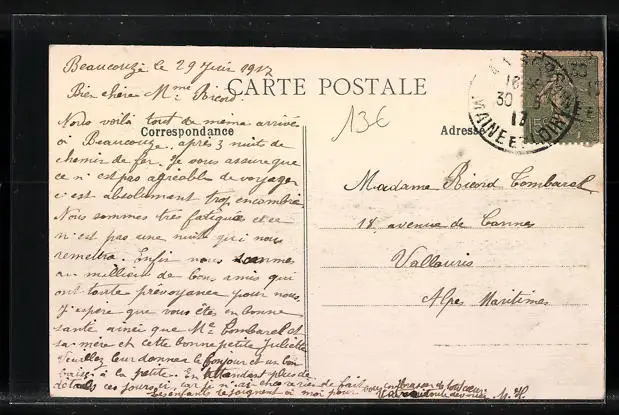 Beaucouzé le 29 Juin 1917
Bien chère Mme Ricord.
CARTE POSTALE
13€
Correspondance
Adresse
Nous voilà tout de même arrivé
à Beaucouzé, après 3 nuits de
chemin de fer. Je vous assure que
ce n'est pas agréable de voyager
c'est absolument trop encombré
Nous sommes très fatigués et ce
n'est pas une nuit qui nous
remettra. Enfin nous sommes
au millieu de bons amis qui
ont toute prévoyance pour nous,
J'espère que vous êtes en bonne
santé ainsi que Me Combarel et
sa mère et cette bonne petite Juliette
Veuillez leur donner le bonjour et un bon
baiser à la petite. En attendant plus de
détails ces jours ci, car je n'ai encore rien de fait
les enfants se joignent à moi pour vous embrasser de tout cœur
M. H.
Madame Ricord Combarel
18, avenue de Cannes
Vallauris
Alpes Maritimes
30
17
MAINE ET LOIRE
15